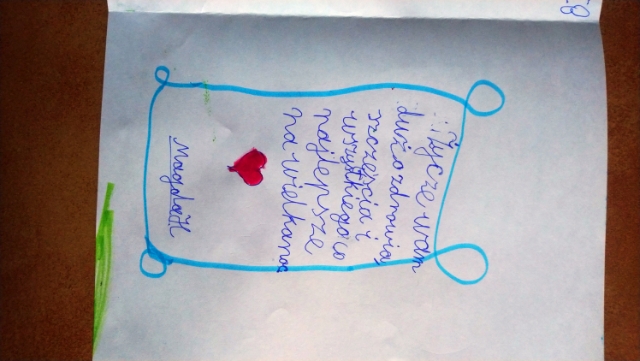 Życze wam
dużo zdrowia,
szczęścia i
wszystkiego co
najlepsze
na wielkanoc
Magda H